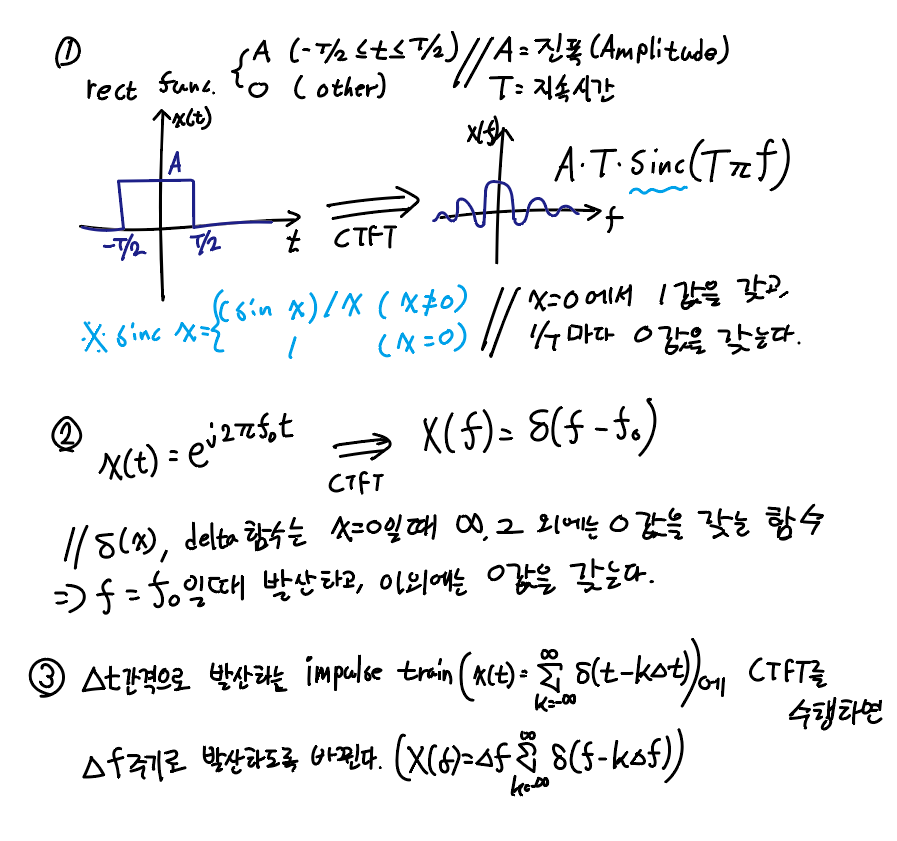 ① rect func. { A (-T/2 ≤ t ≤ T/2) // A = 진폭(Amplitude)
0 (other) T = 지속시간
x(t)
A
-T/2 T/2 t
CTFT
X(f)
f
A·T·sinc(Tπf)
※ sinc x = { (sin x)/x (x≠0) // x=0에서 1값을 갖고,
1 (x=0) 1/T마다 0값을 갖는다.
② x(t) = e^{j2πf₀t} ⇒ X(f) = δ(f-f₀)
CTFT
// δ(x), delta함수는 x=0일때 ∞, 그 외에는 0값을 갖는 함수
=> f = f₀일때 발산하고, 이외에는 0값을 갖는다.
③ Δt간격으로 발산하는 impulse train (x(t) = ∑_{k=-∞}^{∞} δ(t-kΔt))에 CTFT를
수행하면
Δf주기로 발산하도록 바뀐다. (X(f) = Δf ∑_{k=-∞}^{∞} δ(f-kΔf))